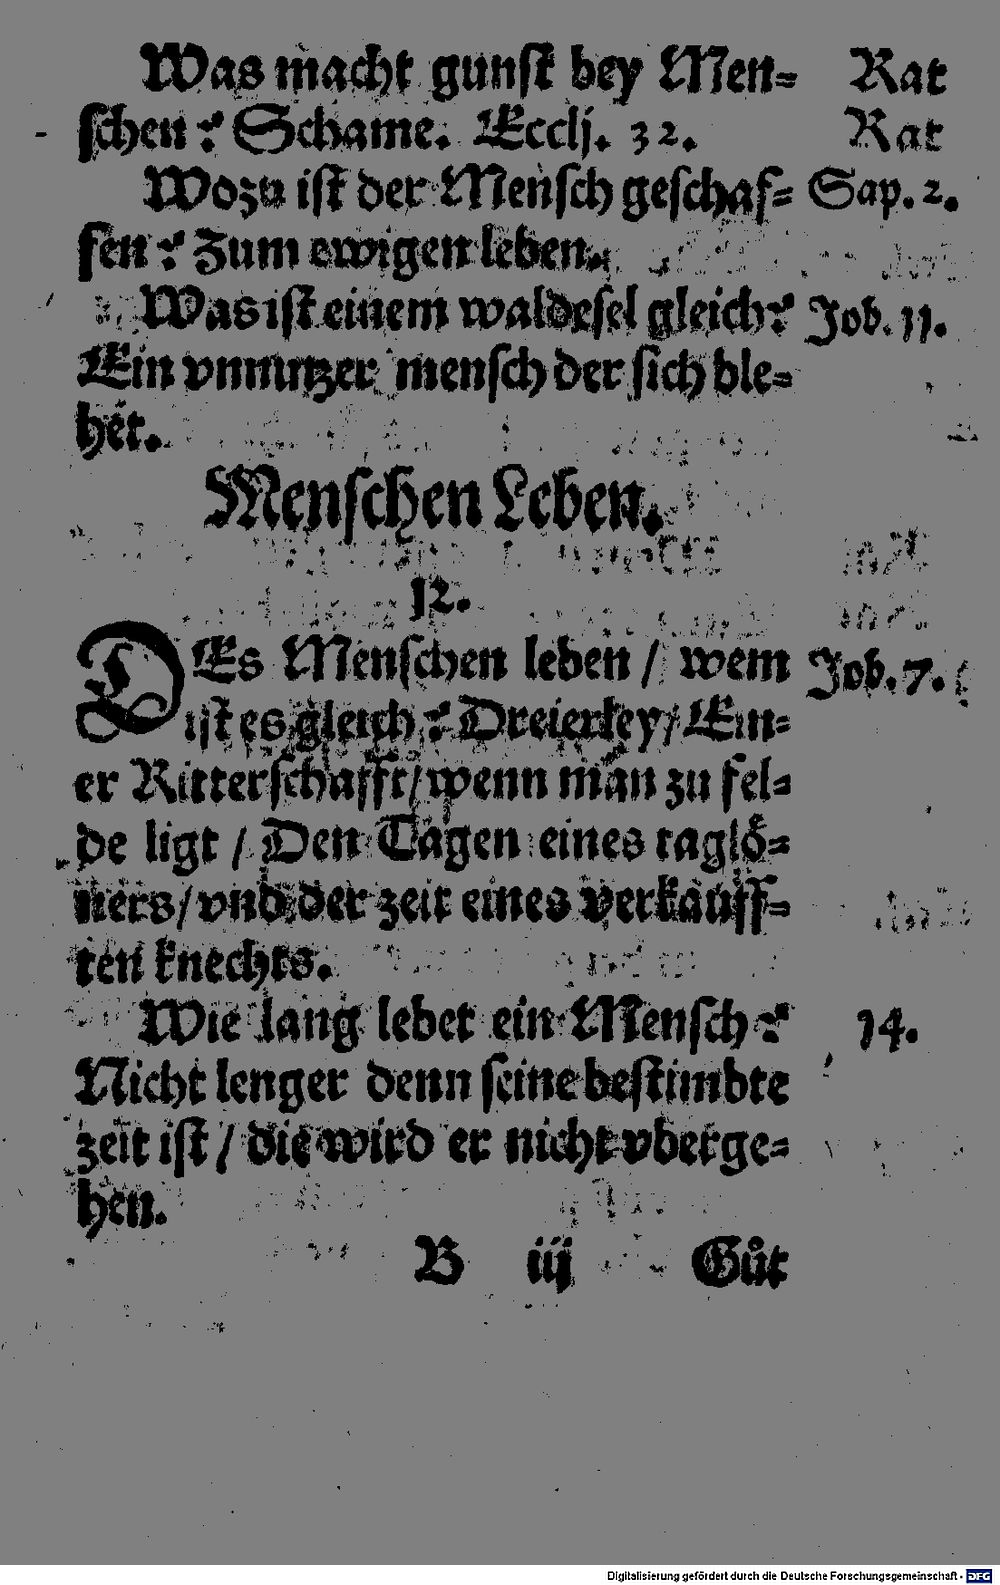 Was macht gunſt bey Men⸗ Rat
ſchen? Schame. Eccli. 32. Rat
Wozu iſt der Menſch geſchaf⸗ Sap. 2.
fen? Zum ewigen leben.
Was iſt einem waldeſel gleich? Job. 11.
Ein vnnutzer menſch der ſich ble⸗
het.
Menſchen Leben.
12.
DEs Menſchen leben / wem Job. 7.
iſt es gleich? Dreierley / Ein⸗
er Ritterſchafft / wenn man zu fel⸗
de ligt / Den Tagen eines taglö⸗
ners / vnd der zeit eines verkauff⸗
ten knechts.
Wie lang lebet ein Menſch? 14.
Nicht lenger denn ſeine beſtimbte
zeit iſt / die wird er nicht vberge⸗
hen.
B iij Gůt
Digitalisierung gefördert durch die Deutsche Forschungsgemeinschaft - DFG